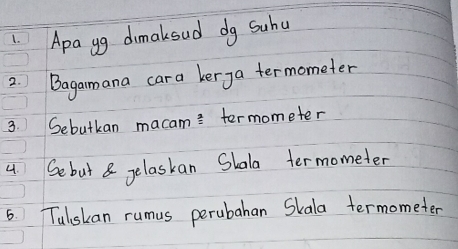 1. Apa yg dimaksud dg suhu
2. Bagaimana cara kerja termometer
3. Sebutkan macam² termometer
4. Sebut & jelaskan Skala termometer
5. Tuliskan rumus perubahan Skala termometer